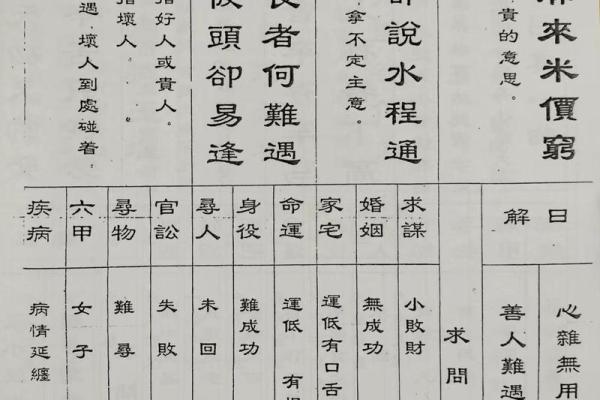 來米價窮
貴的意思。
說水程通
拿不定主意。
者何難遇
頭卻易逢
指好人或貴人。
指壞人。
遇,壞人到處碰着。
日解
心雜無用
善人難遇
求問
求謀
小敗財
婚姻
無成功
家宅
運低有口舌
命運
運低 有
身役
難成功
尋人
未回
官訟
失敗
尋物
難尋
六甲
女子
疾病
病情延纏